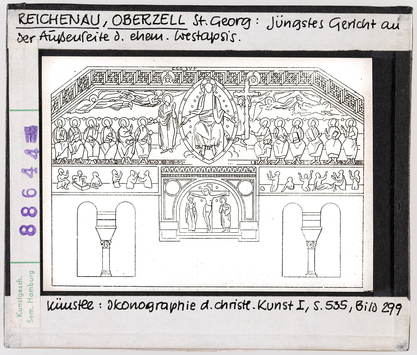 REICHENAU, OBERZELL St. Georg: Jüngstes Gericht an
der Außenseite d. ehem. Westapsis.
88644
Kunstgesch.
Sem. Hamburg
Künstle: Ikonographie d. christl. Kunst I, S. 535, Bild 299